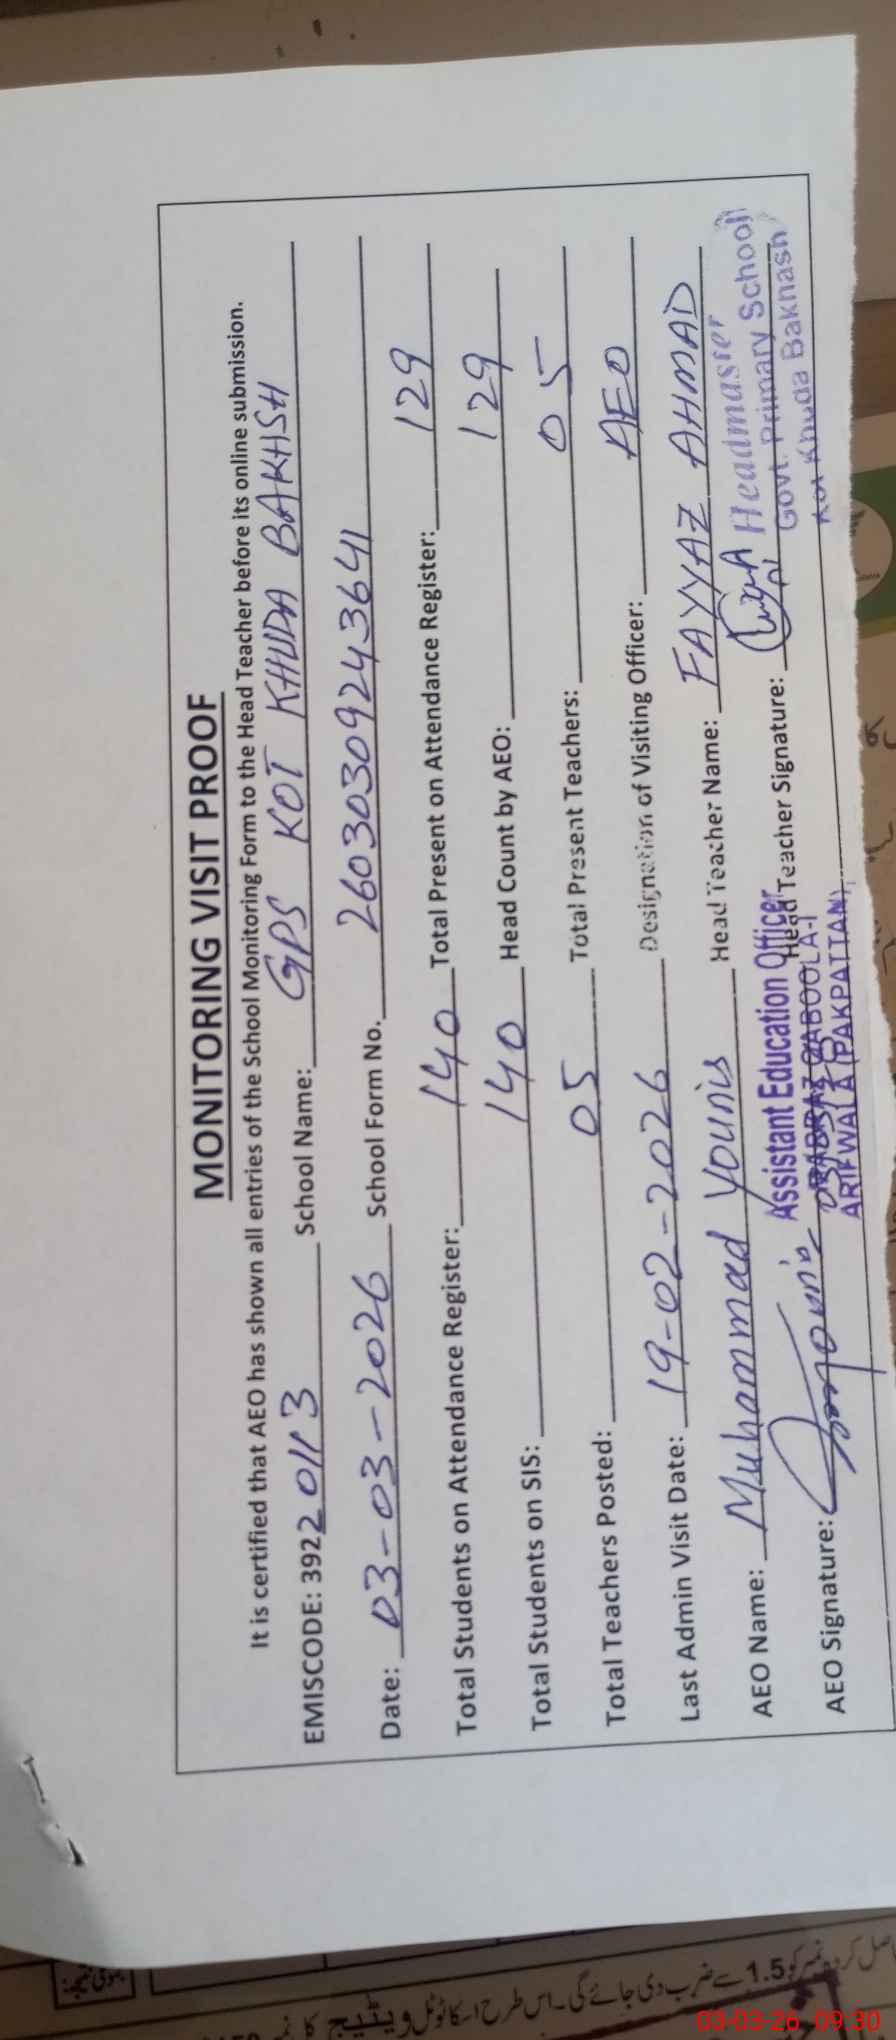 MONITORING VISIT PROOF
It is certified that AEO has shown all entries of the School Monitoring Form to the Head Teacher before its online submission.
EMISCODE: 39220113 School Name: GPS KOT KHUDA BAKHSH
Date: 03-03-2026 School Form No. 2603030924 3641
Total Students on Attendance Register: 140 Total Present on Attendance Register: 129
Total Students on SIS: 140 Head Count by AEO: 129
Total Teachers Posted: 05 Total Present Teachers: 05
Last Admin Visit Date: 19-02-2026 Designation of Visiting Officer: AEO
AEO Name: Muhammad Younis Head Teacher Name: FAYYAZ AHMAD
AEO Signature: Head Teacher Signature:
Assistant Education Officer
ARIFWALA (PAKPATTAN)
Headmaster
Govt. Primary School
Kot Khuda Bakhash
1.5 سے ضرب دی جائے گی۔ اس طرح اسکا ٹوٹل ویٹیج کا نمبر
03-03-26 09:30